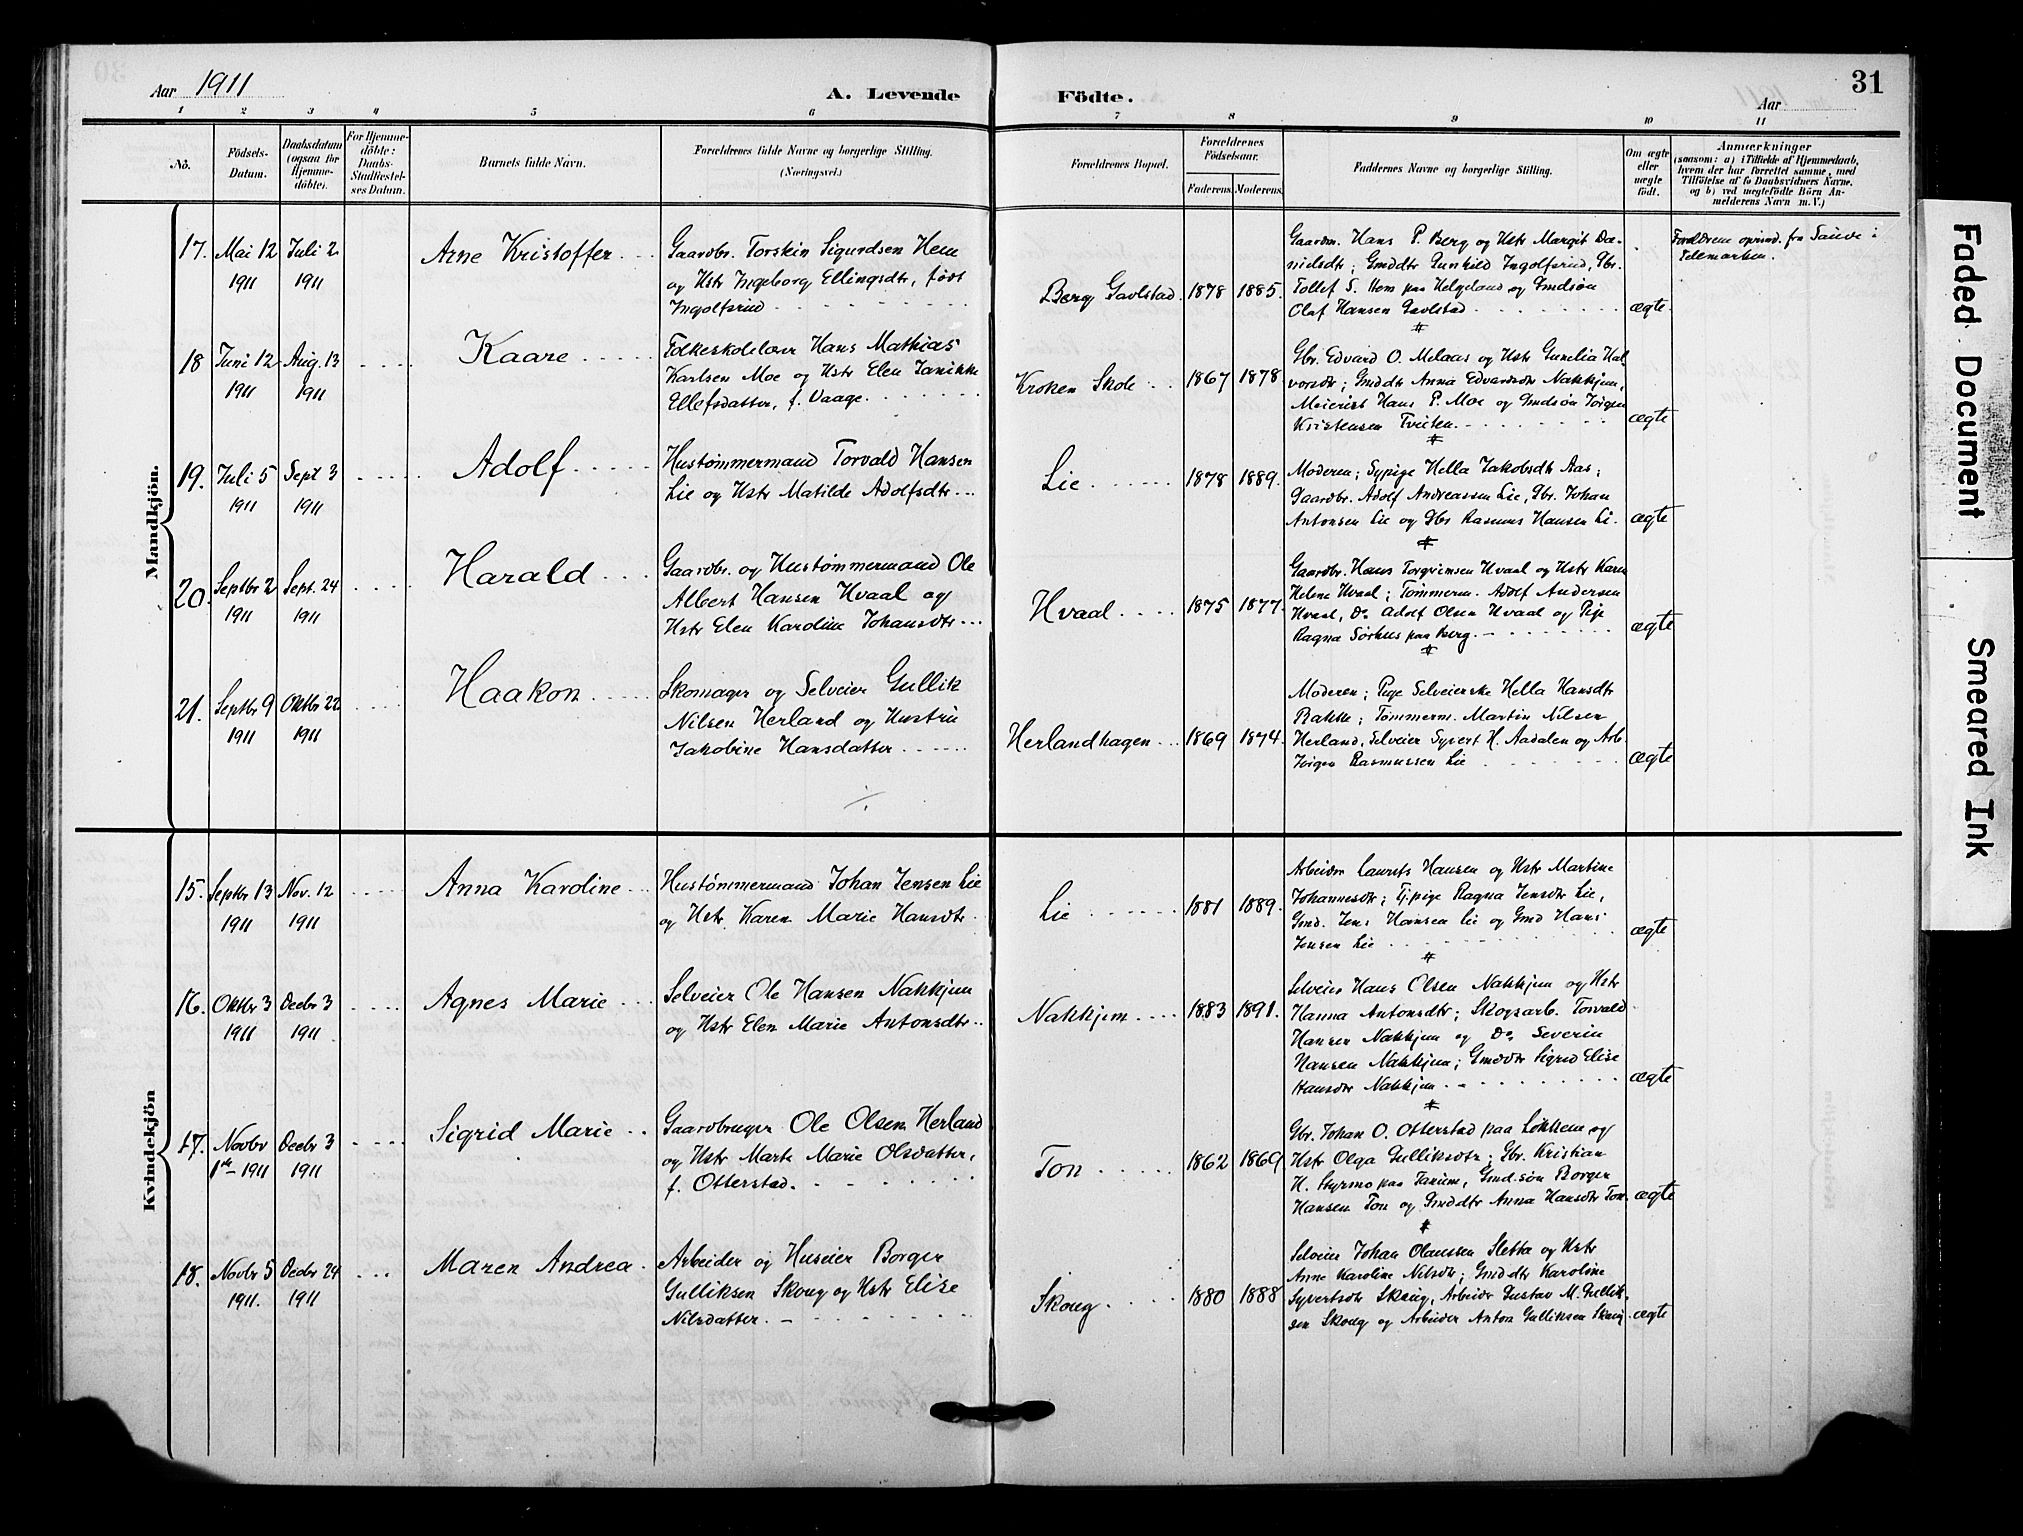 Aar 1911
A. Levende
Födte.
Aar
31
1 2 3 4 5 6 7 8 9 10 11
No.
Födsels-
Datum.
Daabsdatum
(ogsaa for
Hjemme-
döbte).
For Hjemme-
döbte:
Daabs-
Stadfæstel-
ses Datum.
Barnets fulde Navn.
Forældrenes fulde Navne og borgerlige Stilling.
(Næringsvei.)
Forældrenes Bopæl.
Forældrenes
Födselsaar.
Faderens. Moderens.
Faddernes Navne og borgerlige Stilling.
Om ægte
eller
uægte
födt.
Anmærkninger
(saasom: a) i Tilfælde af Hjemmedaab,
hvem der har forrettet samme, med
Tilföielse af to Daabsvidners Navne,
og b) ved uægtefödte Börn An-
melderens Navn m.V.)
Mandkjön.
17. Mai 12
1911
Juli 2
1911
Arne Kristoffer
Gaardbr. Torskin Sigurdsen Hem
og Hstr Ingeborg Ellingsdtr, født
Ingolfsrud
Berg Gavlstad. 1878 1885.
Gaardm. Hans P. Berg og Hstr Margit Da-
nielsdtr; Gmddtr Gunhild Ingolfsrud, Gbr.
Tollef S. Hem paa Helgeland og Gmdsøn
Olaf Hansen Gavlstad
ægte.
Forældrene oprind. fra Sauve i
Telemarken.
18 Juni 12
1911
Aug. 13
1911
Kaare
Folkeskolelærer Hans Mathias
Karlsen Moe og Hstr Elen Janikke
Ellefsdatter, f. Vaage.
Kroken Skole 1867 1878
Gbr. Edvard O. Melaas og Hstr Gunelia Hal
vorsdtr; Gmddtr Anna Edvardsdtr Nakkjem,
Meierist Hans P. Moe og Gmdsøn Jørgen
Kristensen Tveiten.
ægte
19. Juli 5
1911
Sept 3
1911
Adolf
Hustømmermand Torvald Hansen
Lie og Hstr Matilde Adolfsdtr
Lie 1878 1889.
Moderen; Sypige Hella Jakobsdtr Aas;
Gaardbr. Adolf Andreassen Lie, Gbr. Johan
Antonsen Lie og Gbr Rasmus Hansen Li.
ægte
20. Septbr 2
1911
Sept. 24
1911
Harald
Gaardbr. og Hustømmermand Ole
Albert Hansen Hvaal og
Hstr Elen Karoline Johansdtr
Hvaal 1875 1877.
Gaardbr. Hans Torgrimsen Hvaal og Hstr Karen
Helene Hvaal; Tømmerm. Adolf Andersen
Hvaal, Do Adolf Olsen Hvaal og Pige
Ragna Sørhus paa Berg.
ægte
21. Septbr 9
1911
Oktbr 22
1911
Haakon
Skomager og Selveier Gullik
Nilsen Herland og Hustru
Jakobine Hansdatter
Herlandhagen 1869 1874.
Moderen; Pige Selveierske Hella Hansdtr
Bakke; Tømmerm. Martin Nilsen
Herland, Selveier Syvert H. Aadalen og Arb.
Jørgen Rasmussen Lie
ægte
Kvindekjön
15. Septbr 13
1911
Nov. 12
1911
Anna Karoline
Hustømmermand Johan Jensen Lie
og Hstr. Karen Marie Hansdtr
Lie 1881 1889.
Arbeider Laurits Hansen og Hstr Martine
Johannesdtr; Tj.pige Ragna Jensdtr Lie,
Gmd. Jens Hansen Lie og Gmd Hans
Jensen Lie
ægte
16. Oktbr 3
1911
Decbr 3
1911
Agnes Marie
Selveier Ole Hansen Nakkjem
og Hstr Elen Marie Antonsdtr
Nakkjem 1883 1891.
Selveier Hans Olsen Nakkjem og Hstr
Hanna Antonsdtr; Skogsarb. Torvald
Hansen Nakkjem og Do Severin
Hansen Nakkjem; Gmddtr Sigrid Elise
Hansdtr Nakkjem.
ægte
17. Novbr
1ste 1911
Decbr 3
1911
Sigrid Marie
Gaardbruger Ole Olsen Herland
og Hstr Marte Marie Olsdatter,
f. Otterstad.
Ton 1862 1869
Gbr. Johan O. Otterstad paa Løkken og
Hstr Olga Gulliksdtr; Gbr. Kristian
H. Styrmo paa Tanum, Gmd.søn Borger
Hansen Ton og Gmddtr Anna Hansdtr Ton.
ægte
18. Novbr 5
1911.
Decbr 24
1911
Maren Andrea
Arbeider og Huseier Borger
Gulliksen Skoug og Hstr Elise
Nilsdatter.
Skoug 1880 1888
Selveier Johan Olaussen Sletta og Hstr
Anne Karoline Nilsdtr; Gmddtr Karoline
Syvertsdtr Skoug, Arbeider Gustav M. Gullik-
sen Skoug og Arbeider Anton Gulliksen Skoug.
ægte
Faded Document
Smeared Ink